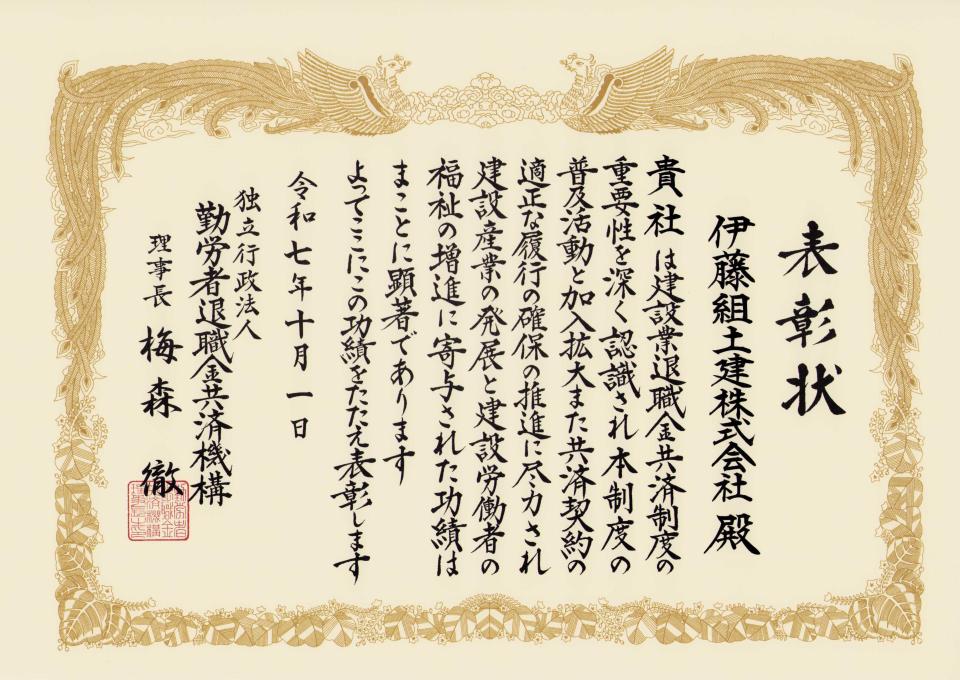 表彰状
伊藤組土建株式会社 殿
貴社は建設業退職金共済制度の
重要性を深く認識され本制度の
普及活動と加入拡大また共済契約の
適正な履行の確保の推進に尽力され
建設産業の発展と建設労働者の
福祉の増進に寄与された功績は
まことに顕著であります
よってここにこの功績をたたえ表彰します
令和七年十月一日
独立行政法人
勤労者退職金共済機構
理事長 梅森 徹